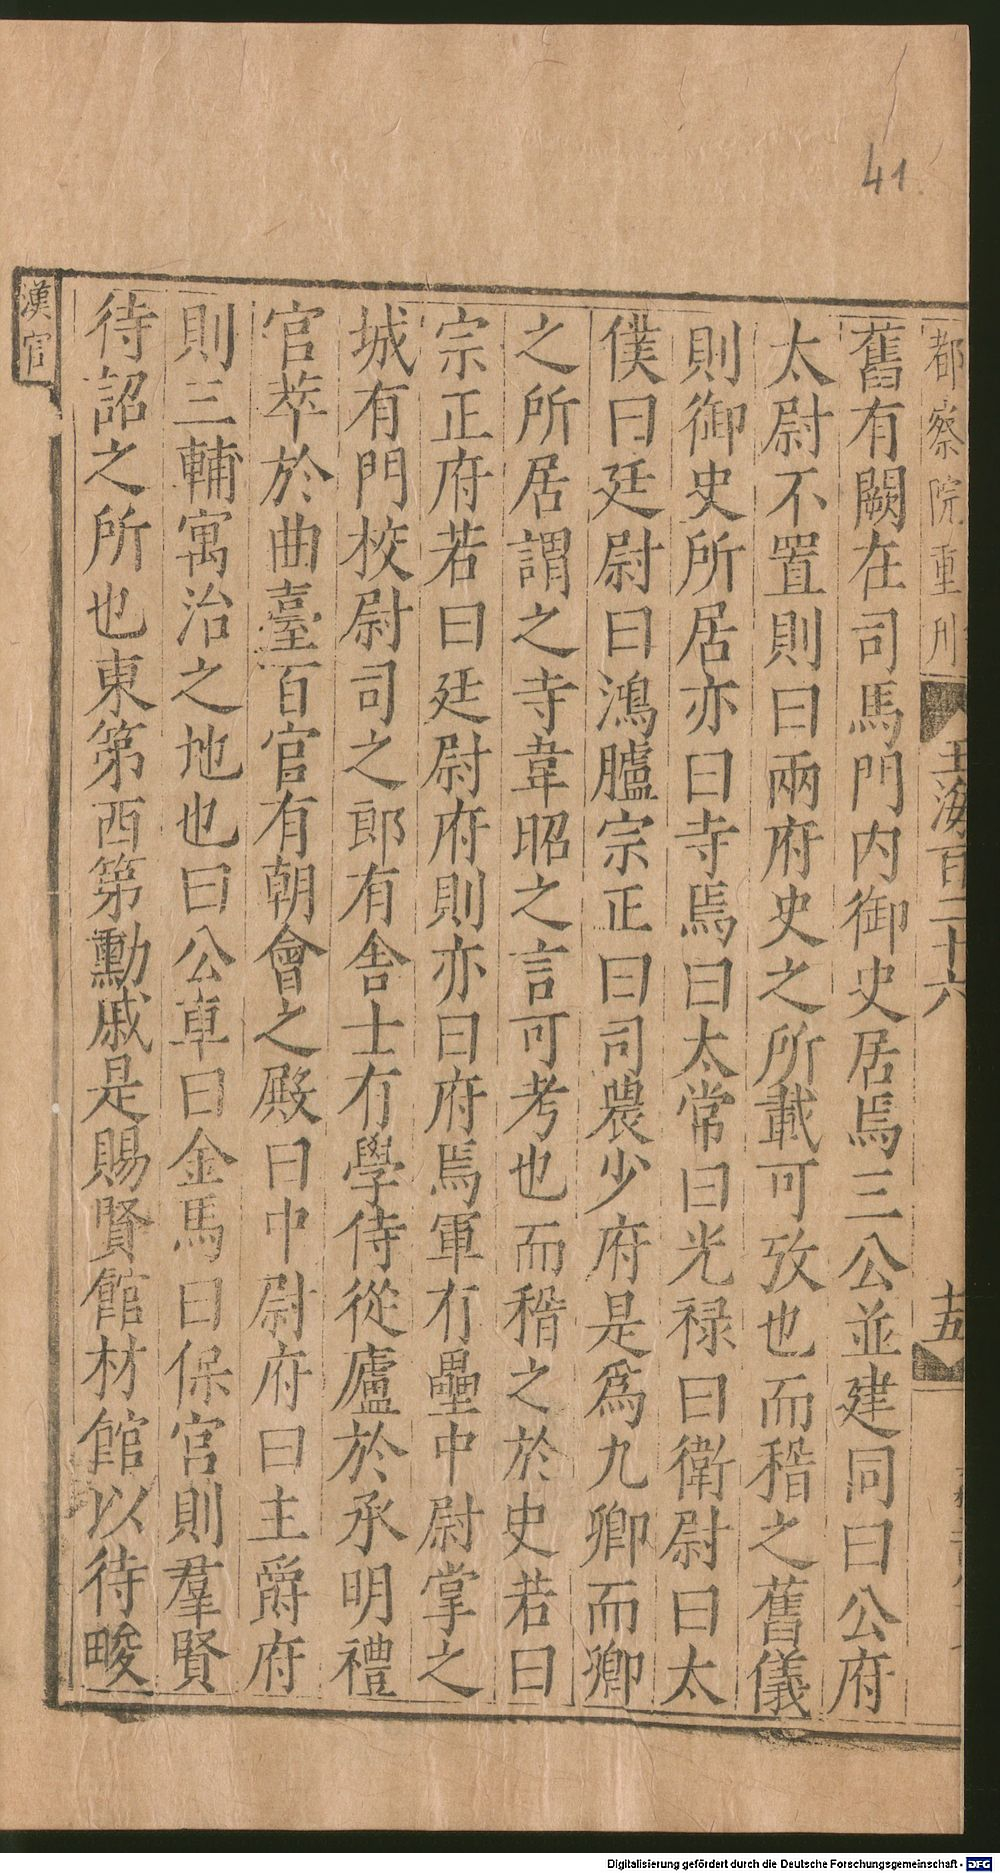 41
都察院重刋
玉海百二十六
十五
舊有闕在司馬門内御史居焉三公並建同曰公府
太尉不置則曰兩府史之所載可攷也而稽之舊儀
則御史所居亦曰寺焉曰太常曰光禄曰衛尉曰太
僕曰廷尉曰鴻臚宗正曰司農少府是爲九卿而卿
之所居謂之寺韋昭之言可考也而稽之於史若曰
宗正府若曰廷尉府則亦曰府焉軍有壘中尉掌之
城有門校尉司之郎有舍士有學侍從廬於承明禮
官萃於曲臺百官有朝會之殿曰中尉府曰主爵府
則三輔寓治之地也曰公車曰金馬曰保宮則羣賢
待詔之所也東第西第勳戚是賜賢館材館以待畯
漢官
Digitalisierung gefördert durch die Deutsche Forschungsgemeinschaft - DFG